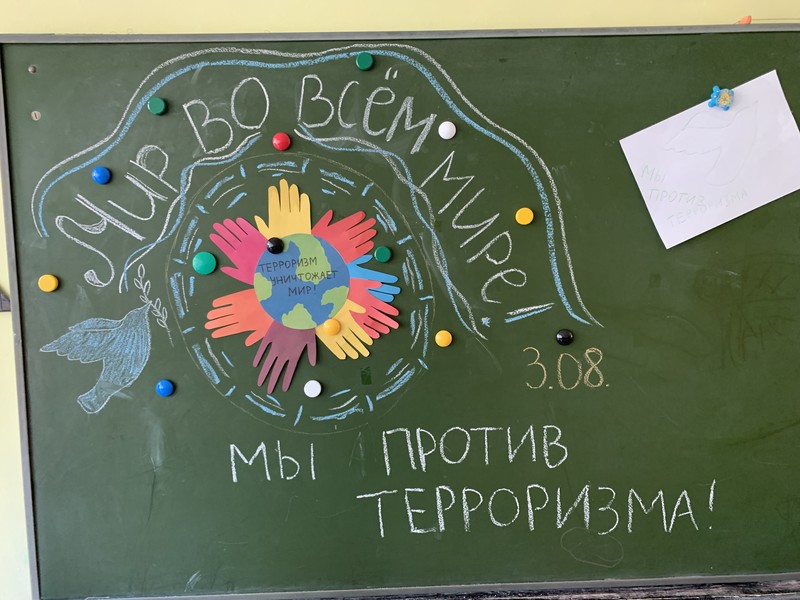 Мир во всём мире!
ТЕРРОРИЗМ
УНИЧТОЖАЕТ
МИР!
3.08.
МЫ ПРОТИВ
ТЕРРОРИЗМА!
МЫ
ПРОТИВ
ТЕРРОРИЗМА